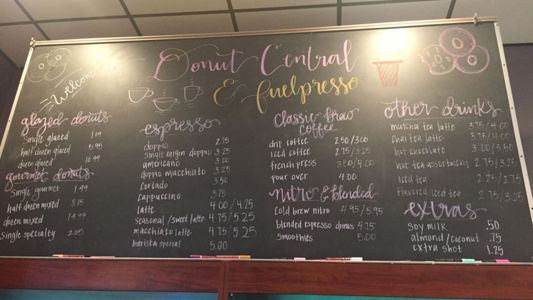 Welcome
Donut Central
& fuelpresso
glazed donuts
single glazed 1.09
half dozen glazed 5.95
dozen glazed 10.99
gourmet donuts
single gourmet 1.49
half dozen mixed 8.15
dozen mixed 14.99
single specialty 2.05
espresso
doppio 2.75
single origin doppio 3.25
americano 3.00
doppio macchiato 3.25
cortado 3.50
cappuccino 3.75
latte 4.00/4.75
seasonal/sweet latte 4.75/5.25
macchiato latte 4.75/5.25
barista special 5.00
classic brew
coffee
drip coffee 2.50/3.00
iced coffee 2.75/3.25
french press 3.50/4.00
pour over 4.00
nitro & blended
cold brew nitro 4.95/5.95
blended espresso drinks 4.75
smoothies 5.00
other drinks
matcha tea latte 3.75/4.00
chai tea latte 3.75/4.00
hot chocolate 3.00/3.50
hot tea assortments 2.75/3.25
iced tea 2.25/2.75
flavored iced tea 2.75/3.25
extras
soy milk .50
almond/coconut .75
extra shot 1.25